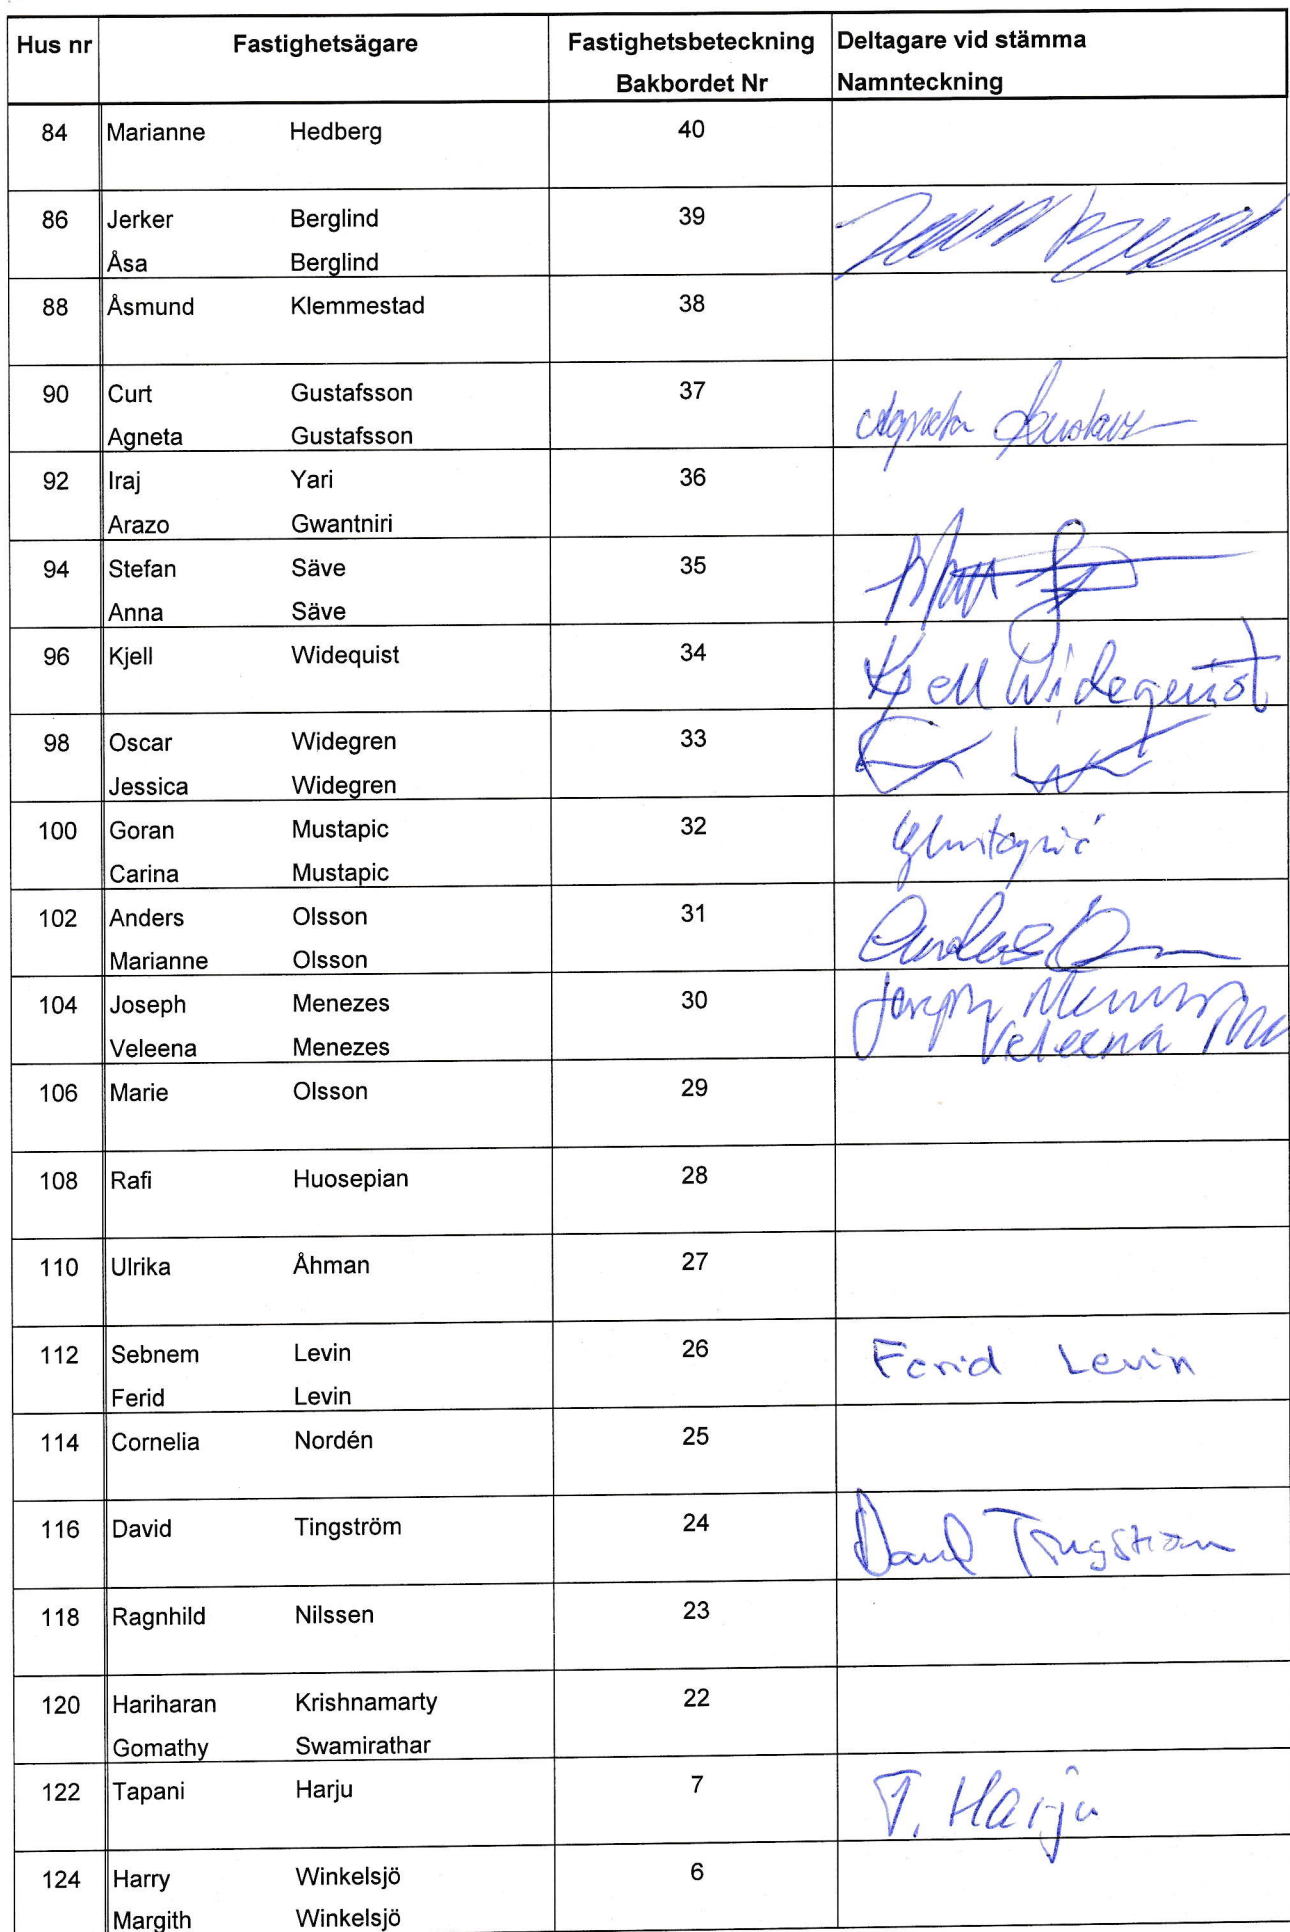 Hus nr Fastighetsägare Fastighetsbeteckning Deltagare vid stämma
Bakbordet Nr Namnteckning
84 Marianne Hedberg 40
86 Jerker Berglind 39
Åsa Berglind
88 Åsmund Klemmestad 38
90 Curt Gustafsson 37
Agneta Gustafsson Agneta
92 Iraj Yari 36
Arazo Gwantniri
94 Stefan Säve 35
Anna Säve
96 Kjell Widequist 34 Kjell Widequist
98 Oscar Widegren 33
Jessica Widegren
100 Goran Mustapic 32
Carina Mustapic
102 Anders Olsson 31 Anders
Marianne Olsson
104 Joseph Menezes 30 Joseph
Veleena Menezes Veleena
106 Marie Olsson 29
108 Rafi Huosepian 28
110 Ulrika Åhman 27
112 Sebnem Levin 26 Ferid Levin
Ferid Levin
114 Cornelia Nordén 25
116 David Tingström 24 David Tingström
118 Ragnhild Nilssen 23
120 Hariharan Krishnamarty 22
Gomathy Swamirathar
122 Tapani Harju 7 T. Harju
124 Harry Winkelsjö 6
Margith Winkelsjö